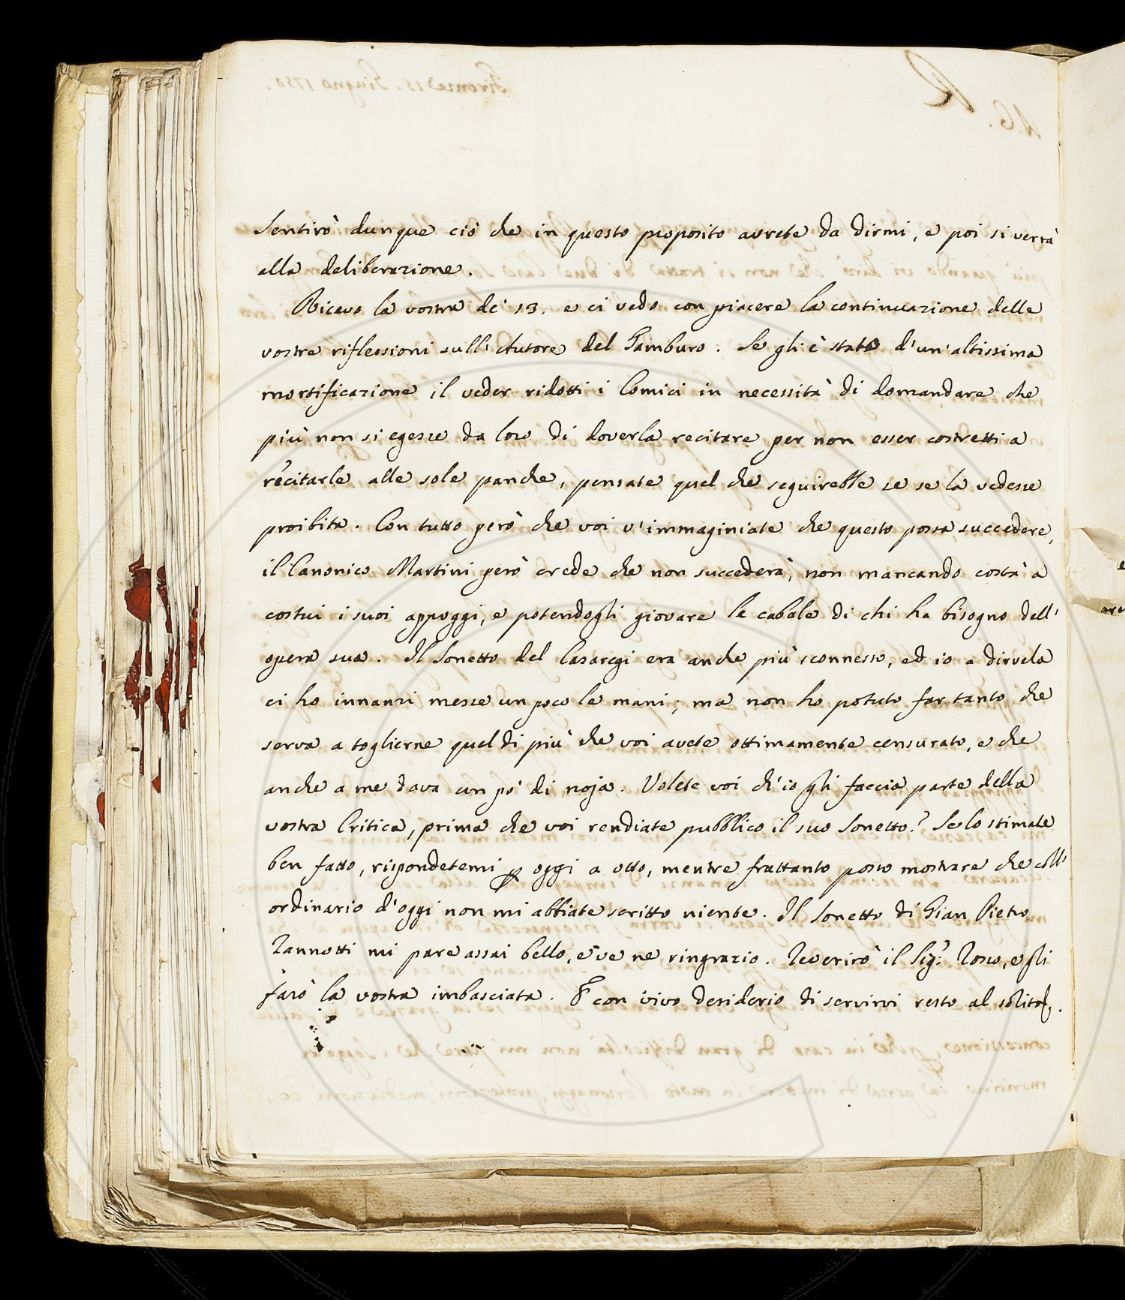 Sentirò dunque ciò che in questo proposito avrete da dirmi, e poi si verrà
alla deliberazione.
Ricevo la vostra de' 13. e ci vedo con piacere la continuazione delle
vostre riflessioni sull'Autore del Tamburo. Se gli è stato d'un'altissima
mortificazione il veder ridotti i Comici in necessità di domandare che
più non si egesse da loro di doverla recitare per non esser costretti a
recitarla alle sole panche, pensate quel che seguirebbe se se la vedesse
proibita. Con tutto però che voi v'immaginiate che questo possa succedere,
il Canonico Martini però crede che non succederà, non mancando costà a
costui i suoi appoggi, e potendogli giovare le cabale di chi ha bisogno dell'
opera sua. Il Sonetto del Casaregi era anche più sconnesso, ed io a dirvela
ci ho innanzi messe un poco le mani; ma non ho potuto far tanto che
serva a toglierne quel di più che voi avete ottimamente censurato, e che
anche a me dava un pò di noja. Volete voi ch'io gli faccia parte della
vostra Critica, prima che voi rendiate pubblico il suo Sonetto? Se lo stimate
ben fatto, rispondetemi oggi a otto, mentre frattanto posso mostrare che coll'
ordinario d'oggi non mi abbiate scritto niente. Il Sonetto di Gian Pietro
Zannotti mi pare assai bello, e ve ne ringrazio. Reverirò il Sig.r Rosso, e gli
farò la vostra imbasciata. E con vivo desiderio di servirvi resto al solito.